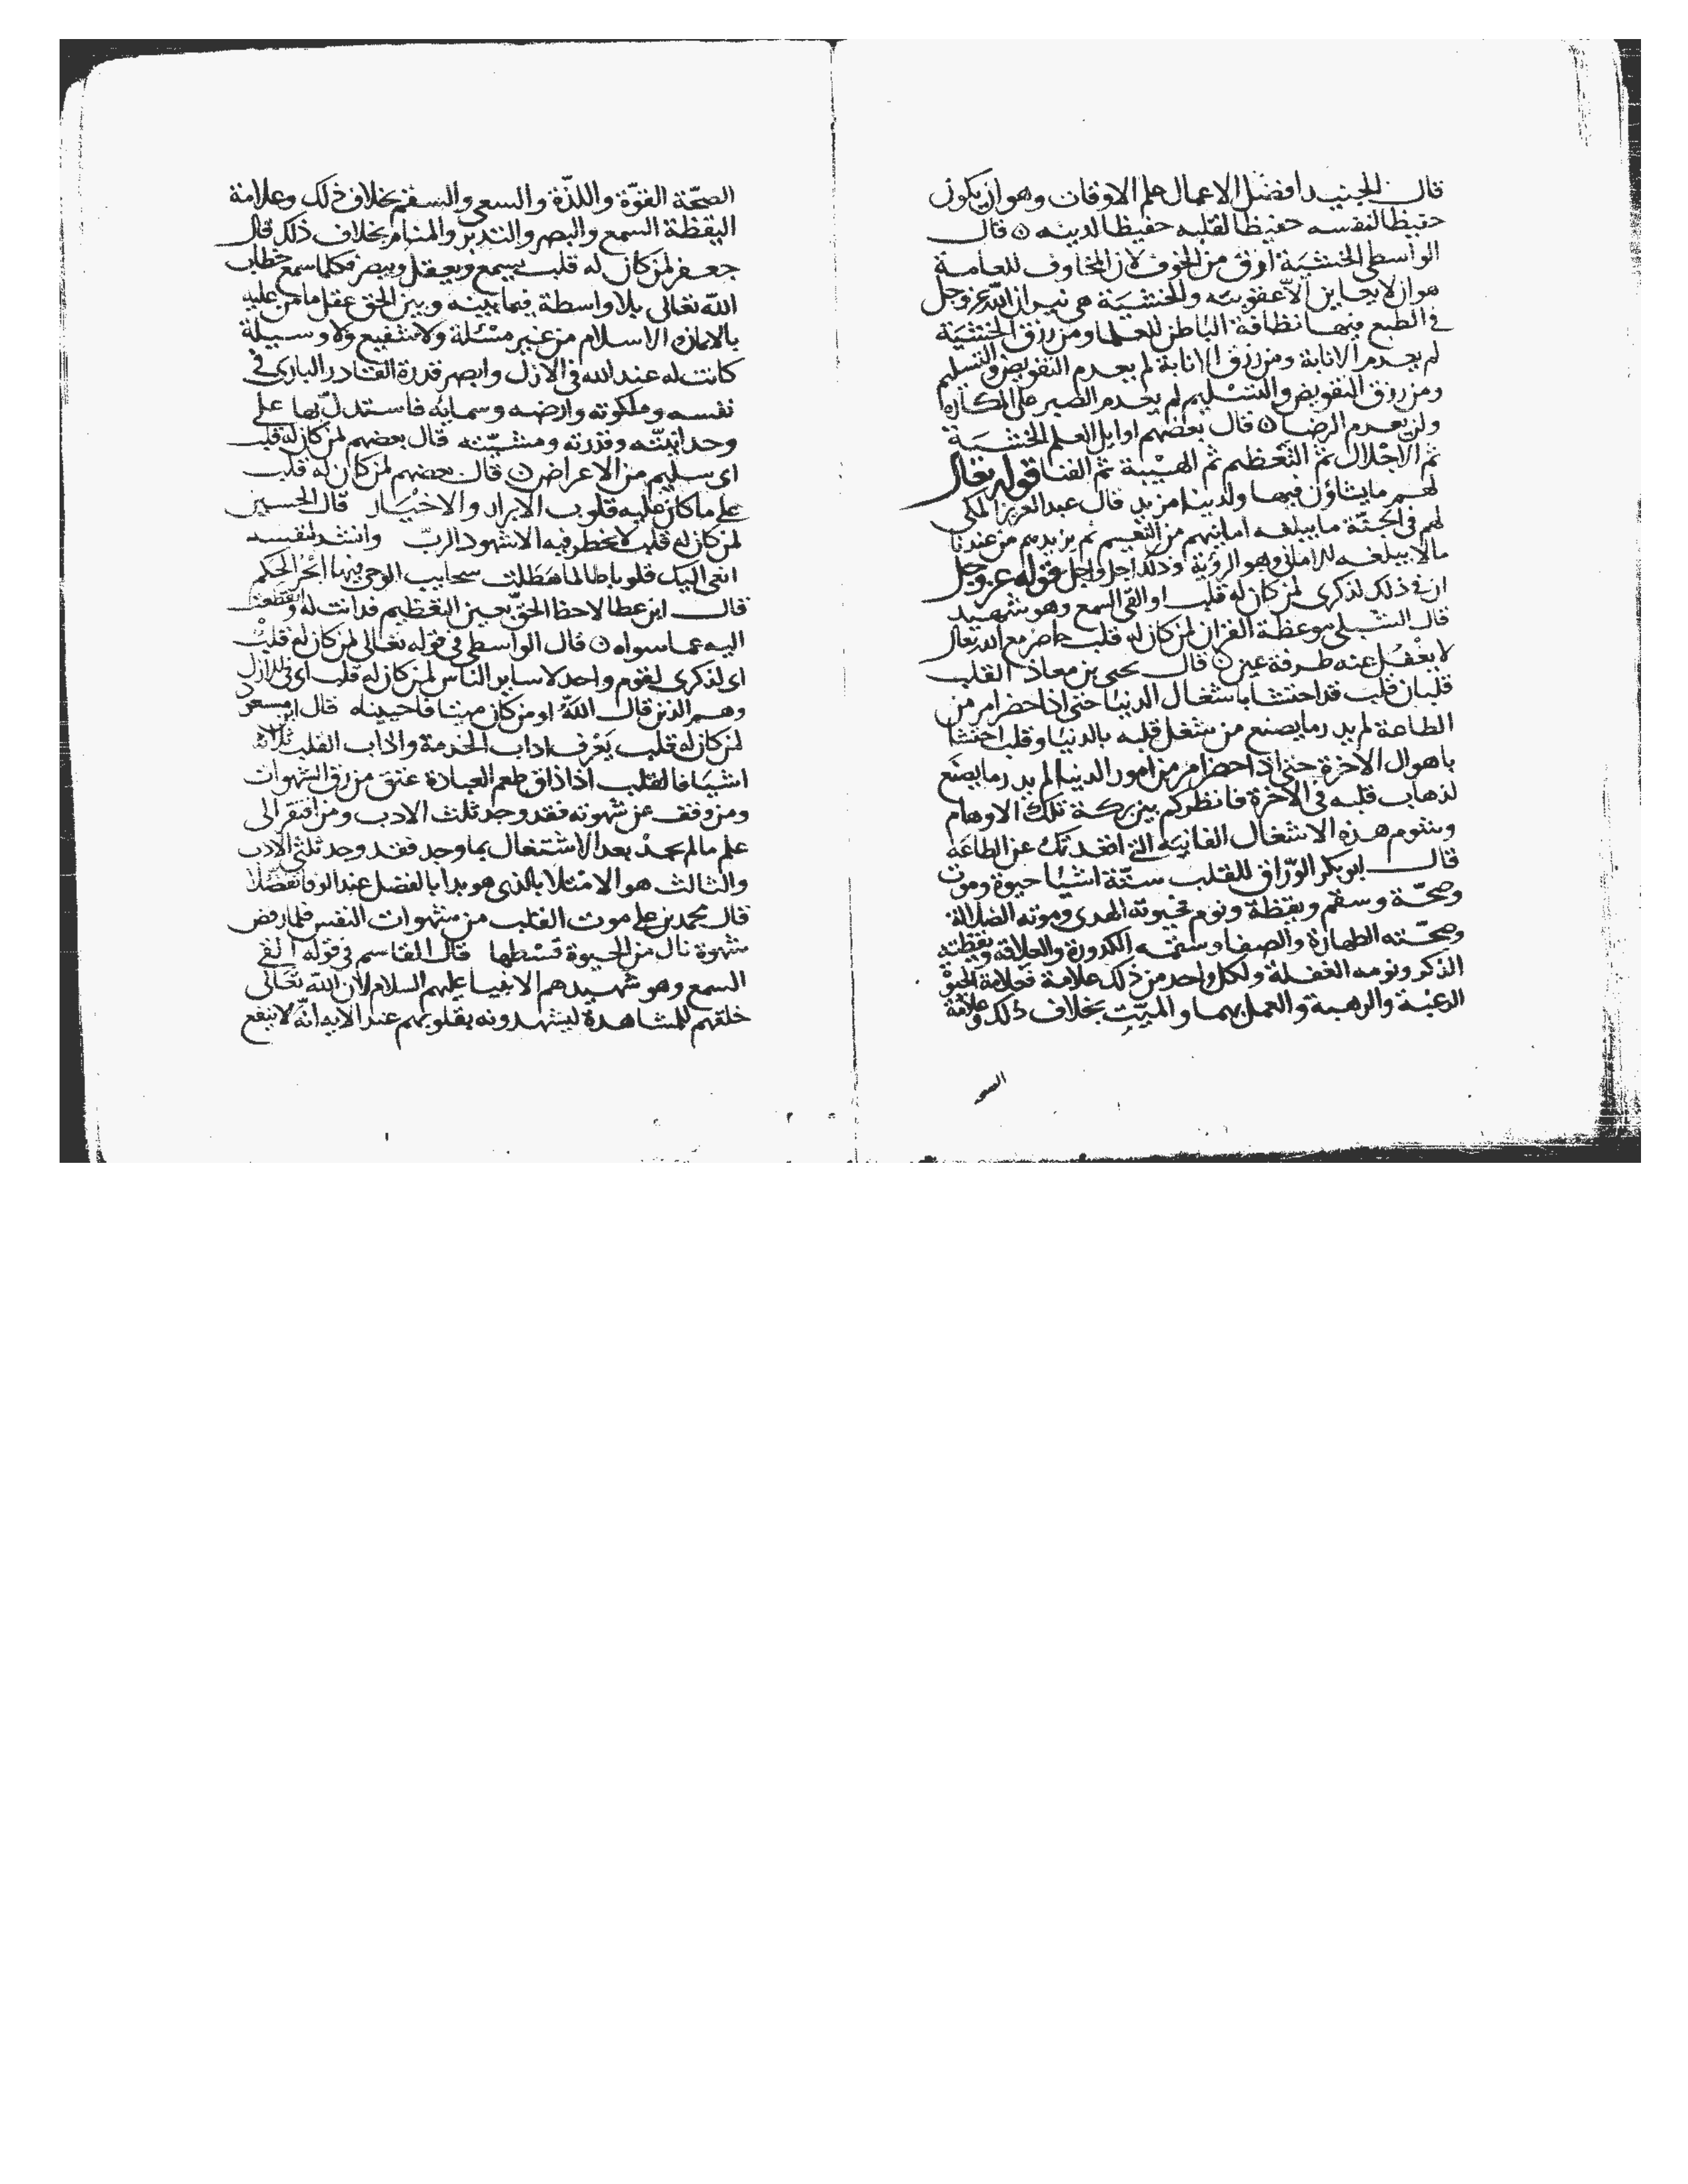 قال الجنيد افضل الاعمال علم الاوقات وهو ان يكون
حفيظا لنفسه حفيظا لقلبه حفيظا لدينه ن قال
الواسطي الخشية ارق من الخوف لان المخاوف للعامة
هو ان لا يعاين الا عقوبته والخشية هي نيران الله عز وجل
في الطبع فيها نظافة الباطن للعلما ومن رزق الخشية
لم يعدم الانابة ومن رزق الانابة لم يعدم التفويض والتسليم
ومن رزق التفويض والتسليم لم يعدم الصبر على المكاره
ولن يعدم الرضا ن قال بعضهم اوايل العلم الخشية
ثم الاجلال ثم التعظيم ثم الهيبة ثم الفنا قوله تعالى
لهم ما يشاؤن فيها ولدينا مزيد قال عبد العزيز المكي
لهم في الجنة ما يبلغه امانيهم من النعيم ثم يزيدهم من عندنا
مالا يبلغه الاماني وهو الرؤية وذلك اجل واجل قوله عز وجل
ان في ذلك لذكرى لمن كان له قلب او القى السمع وهو شهيد
قال الشبلي موعظة القران لمن كان له قلب حاضر مع الله تعالى
لا يغفل عنه طرفة عين ن قال يحيى بن معاذ القلب
قلبان قلب قد احتشا باشغال الدنيا حتى اذا حضر امر من
الطاعة لم يدر ما يصنع من شغل قلبه بالدنيا وقلب احتشا
باهوال الاخرة حتى اذا حضر امر من امور الدنيا لم يدر ما يصنع
لذهاب قلبه في الاخرة فانظر كم بين بركة تلك الاوهام
وشوم هذه الاشغال الفانية التي اقعدتك عن الطاعة
قال ابو بكر الوراق للقلب ستة اشيا حيوة وموت
وصحة وسقم ويقظة ونوم فحيوته الهدى وموته الضلالة
وصحته الطهارة والصفا وسقمه الكدورة والعلاقة ويقظته
الذكر ونومه الغفلة ولكل واحد من ذلك علامة فعلامة الحيوة
الرغبة والرهبة والعمل بهما والميت بخلاف ذلك وعلامة
الصحـ
الصحة القوة واللذة والسعي والسقم بخلاف ذلك وعلامة
اليقظة السمع والبصر والتدبر والمنام بخلاف ذلك قال
جعفر لمن كان له قلب يسمع ويعقل ويبصر فكلما سمع خطاب
الله تعالى بلا واسطة فيما بينه وبين الحق عقل ما من عليه
بالايمان الاسلام من غير مسئلة ولا شفيع ولا وسيلة
كانت له عند الله في الازل وابصر قدرة القادر الباري في
نفسه وملكوته وارضه وسمائه فاستدل بها على
وحدانيته وقدرته ومشيته قال بعضهم لمن كان له قلب
اي سليم من الاعراض ن قال بعضهم لمن كان له قلب
على ما كان عليه قلوب الابرار والاخيار قال الحسين
لمن كان له قلب لا يخطر فيه الا شهود الرب وانشد لنفسه
انعى اليك قلوبا طالما هطلت سحايب الوحي فيها ابحر الحكم
قال ابن عطا لاحظ الحق بعين التعظيم فدانت له وانقطعت
اليه عما سواه ن قال الواسطي في قوله تعالى لمن كان له قلب
اي لذكرى لقوم واحد لا ساير الناس لمن كان له قلب اي في الازل
وهم الذين قال الله اومن كان ميتا فاحييناه قال ابن مسعود
لمن كان له قلب يعرف اداب الخدمة واداب القلب ثلاثة
اشيا فالقلب اذا ذاق طعم العبادة عتق من رق الشهوات
ومن وقف عن شهوته فقد وجد ثلث الادب ومن افتقر الى
علم ما لم يجد بعد الاشتغال بما وجد فقد وجد ثلثي الادب
والثالث هو الامتلا بالذي هو بدا بالفضل عند الوفا تفضلا
قال محمد بن علي موت القلب من شهوات النفس فلما رفض
شهوة نال من الحيوة قسطها قال القاسم في قوله القى
السمع وهو شهيد هم الانبيا عليهم السلام لان الله تعالى
خلقهم للمشاهدة ليشهدونه بقلوبهم عند الايه انه لا ينفع